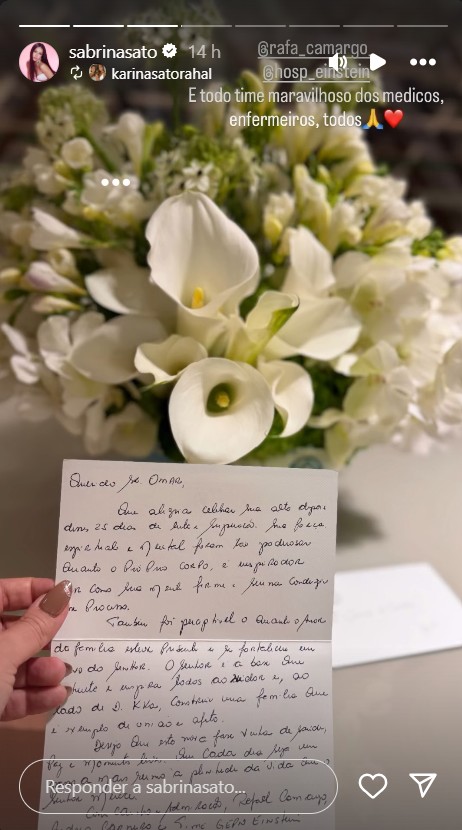 sabrinasato 14 h
karinasatorahal
@rafa_camargo
@hosp_einstein
E todo time maravilhoso dos medicos,
enfermeiros, todos🙏❤️
Querido Sr OMAR,
Que alegria celebrar sua alta depois
destes 25 dias de luta e superação. Sua força
espiritual e mental foram tão poderosas
quanto o próprio corpo, e inspirador
como sua mente firme e serena conduziu
o Processo.
Também foi perceptível o quanto o Amor
da família esteve Presente e se fortaleceu em
do senhor. O senhor é a base que
e inspira todos ao redor e, ao
lado de D. Kika, construiu uma família que
é exemplo de união e afeto.
Desejo que esta nova fase venha de saúde,
Paz e momentos Que cada dia seja um
a mais rumo a plenitude da vida que o
senhor merece.
Com carinho e Admiração, Rafael Camargo,
e Time Einstein
Responder a sabrinasato...